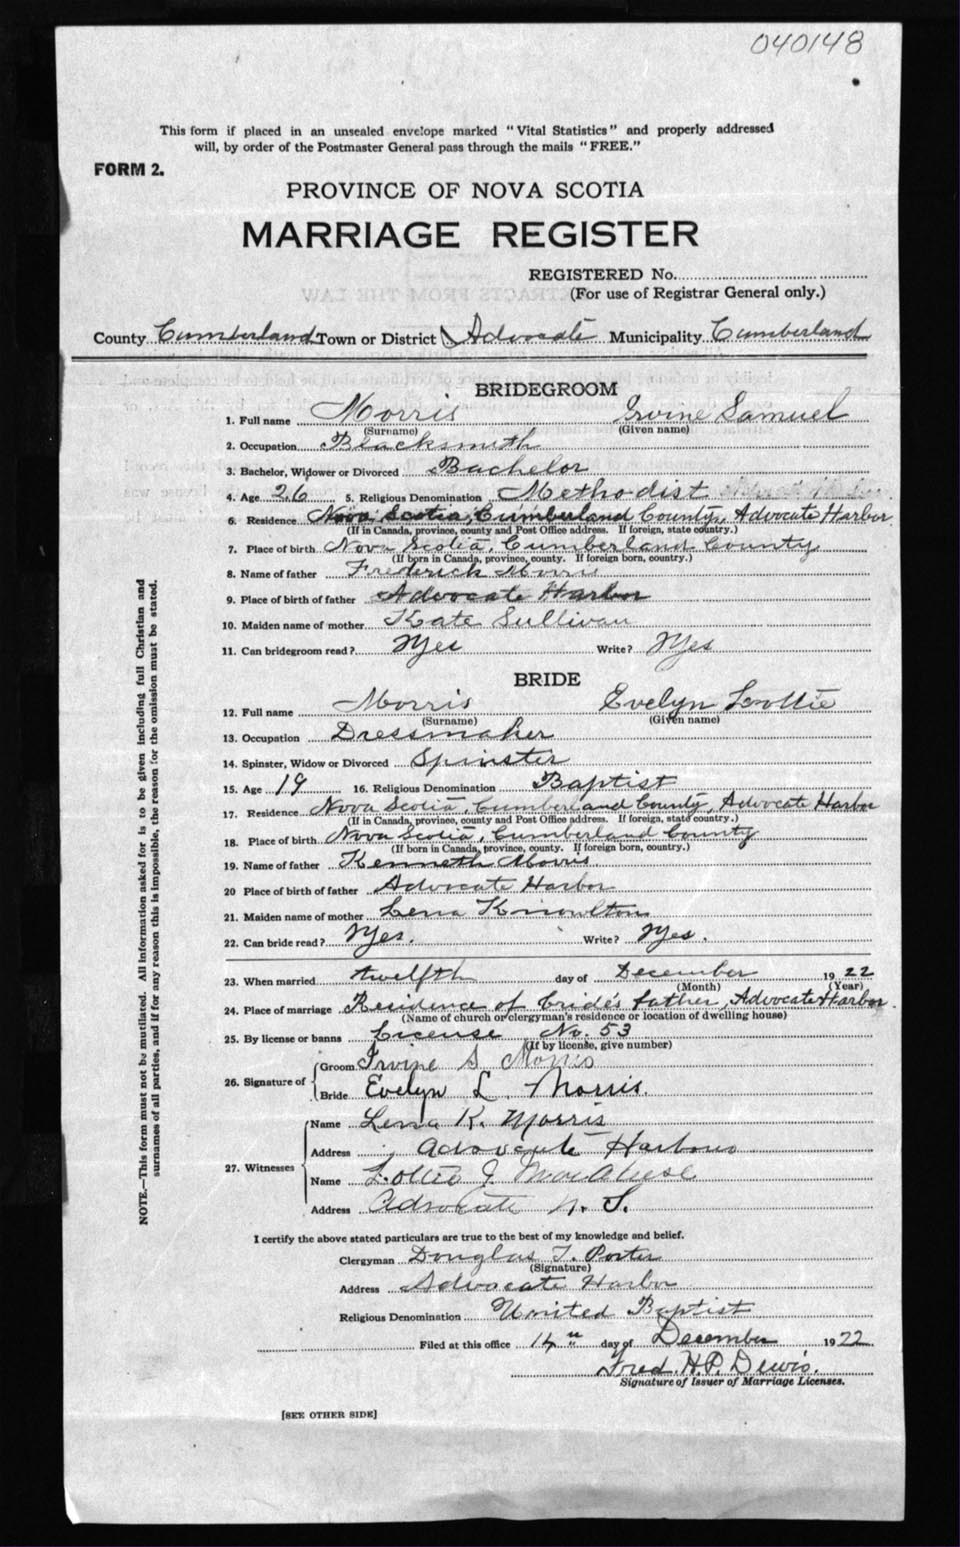 040148
This form if placed in an unsealed envelope marked "Vital Statistics" and properly addressed
will, by order of the Postmaster General pass through the mails "FREE."
FORM 2.
PROVINCE OF NOVA SCOTIA
MARRIAGE REGISTER
REGISTERED No.
(For use of Registrar General only.)
County Cumberland Town or District Advocate Municipality Cumberland
BRIDEGROOM
1. Full name Morris Irvine Samuel
(Surname) (Given name)
2. Occupation Blacksmith
3. Bachelor, Widower or Divorced Bachelor
4. Age 26 5. Religious Denomination Methodist
6. Residence Nova Scotia, Cumberland County, Advocate Harbor
(If in Canada, province, county and Post Office address. If foreign, state country.)
7. Place of birth Nova Scotia, Cumberland County
(If born in Canada, province, county. If foreign born, country.)
8. Name of father Frederick Morris
9. Place of birth of father Advocate Harbor
10. Maiden name of mother Kate Sullivan
11. Can bridegroom read? Yes Write? Yes
BRIDE
12. Full name Morris Evelyn Lottie
(Surname) (Given name)
13. Occupation Dressmaker
14. Spinster, Widow or Divorced Spinster
15. Age 19 16. Religious Denomination Baptist
17. Residence Nova Scotia, Cumberland County, Advocate Harbor
(If in Canada, province, county and Post Office address. If foreign, state country.)
18. Place of birth Nova Scotia, Cumberland County
(If born in Canada, province, county. If foreign born, country.)
19. Name of father Kenneth Morris
20 Place of birth of father Advocate Harbor
21. Maiden name of mother Lena Knowlton
22. Can bride read? Yes. Write? Yes.
23. When married twelfth day of December 1922
(Month) (Year)
24. Place of marriage Residence of bride's father, Advocate Harbor.
(Name of church or clergyman's residence or location of dwelling house)
25. By license or banns License No. 53
(If by license, give number)
26. Signature of Groom Irvine S Morris
Bride Evelyn L. Morris.
27. Witnesses
Name Lena K. Morris
Address Advocate Harbour
Name Lottie J
Address Advocate N. S.
I certify the above stated particulars are true to the best of my knowledge and belief.
Clergyman Douglas T. Porter
(Signature)
Address Advocate Harbor
Religious Denomination United Baptist
Filed at this office 14" day of December 1922
Fred. H. P. Dewis.
Signature of Issuer of Marriage Licenses.
[SEE OTHER SIDE]
NOTE.—This form must not be mutilated. All information asked for is to be given including full Christian and
surnames of all parties, and if for any reason this is impossible, the reason for the omission must be stated.